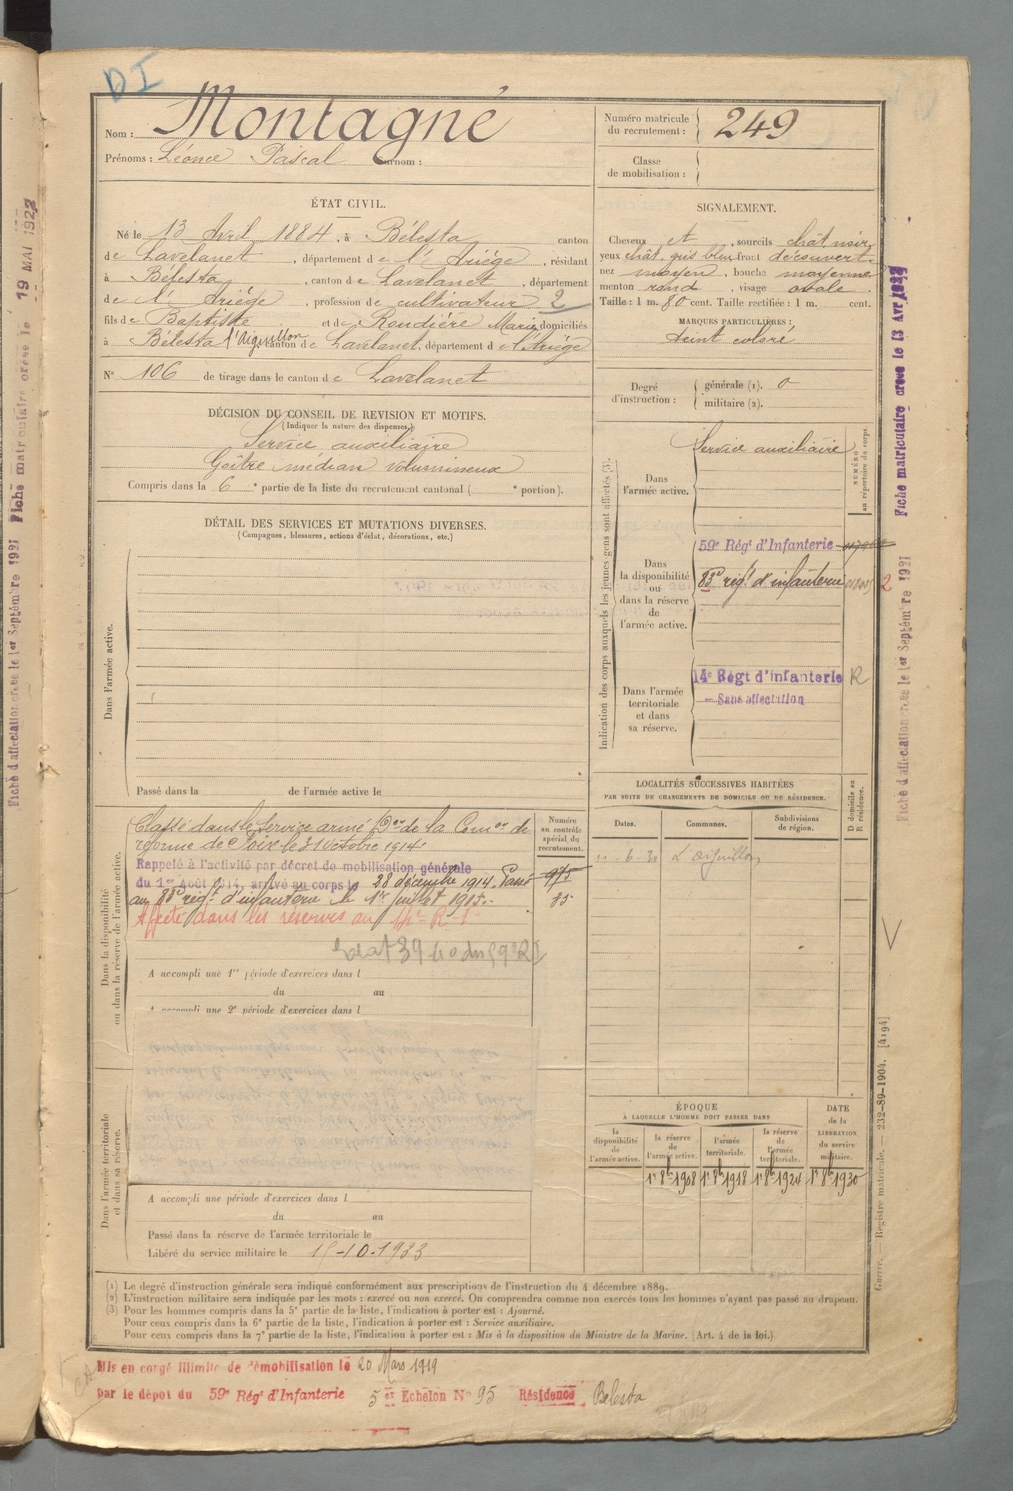 DI
Nom : Montagné
Prénoms : Léonce Pascal Surnom :
Numéro matricule du recrutement : 249
Classe de mobilisation :
ÉTAT CIVIL.
Né le 13 Avril 1884, à Bélesta canton
de Lavelanet, département de l'Ariège, résidant
à Bélesta, canton de Lavelanet, département
de l'Ariège, profession de cultivateur 2
fils de Baptiste et de Roudière Marie, domiciliés
à Bélesta l'Aiguillon canton de Lavelanet, département de l'Ariège
N° 106 de tirage dans le canton de Lavelanet
SIGNALEMENT.
Cheveux et, sourcils chât. noir
yeux chât. gris bleu front découvert
nez moyen, bouche moyenne
menton rond, visage ovale.
Taille : 1 m. 80 cent. Taille rectifiée : 1 m. cent.
MARQUES PARTICULIÈRES :
teint coloré
Degré d'instruction : générale (1). 0
militaire (2).
DÉCISION DU CONSEIL DE REVISION ET MOTIFS.
(Indiquer la nature des dispenses.)
Service auxiliaire
Goître médian volumineux
Compris dans la 6e partie de la liste du recrutement cantonal ( e portion).
DÉTAIL DES SERVICES ET MUTATIONS DIVERSES.
(Campagnes, blessures, actions d'éclat, décorations, etc.)
Dans l'armée active.
Passé dans la de l'armée active le
Indication des corps auxquels les jeunes gens sont affectés (3).
NUMÉRO au répertoire du corps.
Dans l'armée active.
Service auxiliaire
Dans la disponibilité ou dans la réserve de l'armée active.
59e Régt d'Infanterie
83e régt d'infanterie
2
Dans l'armée territoriale et dans sa réserve.
14e Régt d'infanterie R
- Sans affectation
LOCALITÉS SUCCESSIVES HABITÉES
PAR SUITE DE CHANGEMENTS DE DOMICILE OU DE RÉSIDENCE.
D domicile ou R résidence.
Dates. Communes. Subdivisions de région.
L'aiguillon
Dans la disponibilité ou dans la réserve de l'armée active.
Numéro au contrôle spécial du recrutement.
Classé dans le Service armé Don de la Comon de
réforme de Foix le 31 Octobre 1914
Rappelé à l'activité par décret de mobilisation générale
du 1er Août 1914, arrivé au corps le 28 décembre 1914. Passé
au 83e régt d'infanterie le 1er juillet 1915.
Affecté dans les réserves au
975
75
A accompli une 1re période d'exercices dans l
du au
accompli une 2e période d'exercices dans l
V
Dans l'armée territoriale et dans sa réserve.
A accompli une période d'exercices dans l
du au
Passé dans la réserve de l'armée territoriale le
Libéré du service militaire le 15-10-1933
ÉPOQUE
À LAQUELLE L'HOMME DOIT PASSER DANS
la disponibilité de l'armée active.
la réserve de l'armée active.
l'armée territoriale.
la réserve de l'armée territoriale.
DATE de la LIBÉRATION du service militaire.
1er 8bre 1908 1er 8bre 1918 1er 8bre 1924 1er 8bre 1930
(1) Le degré d'instruction générale sera indiqué conformément aux prescriptions de l'instruction du 4 décembre 1889.
(2) L'instruction militaire sera indiquée par les mots : exercé ou non exercé. On comprendra comme non exercés tous les hommes n'ayant pas passé au drapeau.
(3) Pour les hommes compris dans la 5e partie de la liste, l'indication à porter est : Ajourné.
Pour ceux compris dans la 6e partie de la liste, l'indication à porter est : Service auxiliaire.
Pour ceux compris dans la 7e partie de la liste, l'indication à porter est : Mis à la disposition du Ministre de la Marine. (Art. 4 de la loi.)
Mis en congé illimité de démobilisation le 20 Mars 1919
par le dépôt du 59e Régt d'Infanterie 5e Echelon N° 95 Résidence Bélesta
Guerre. — Registre matricule. — 232-89-1904. [4194]
Fiche d'affectation créée le 1er Septembre 1921 Fiche matriculaire créée le 13 Avr
Fiche d'affectation créée le 1er Septembre 1921 Fiche matriculaire créée le 19 MAI 1922